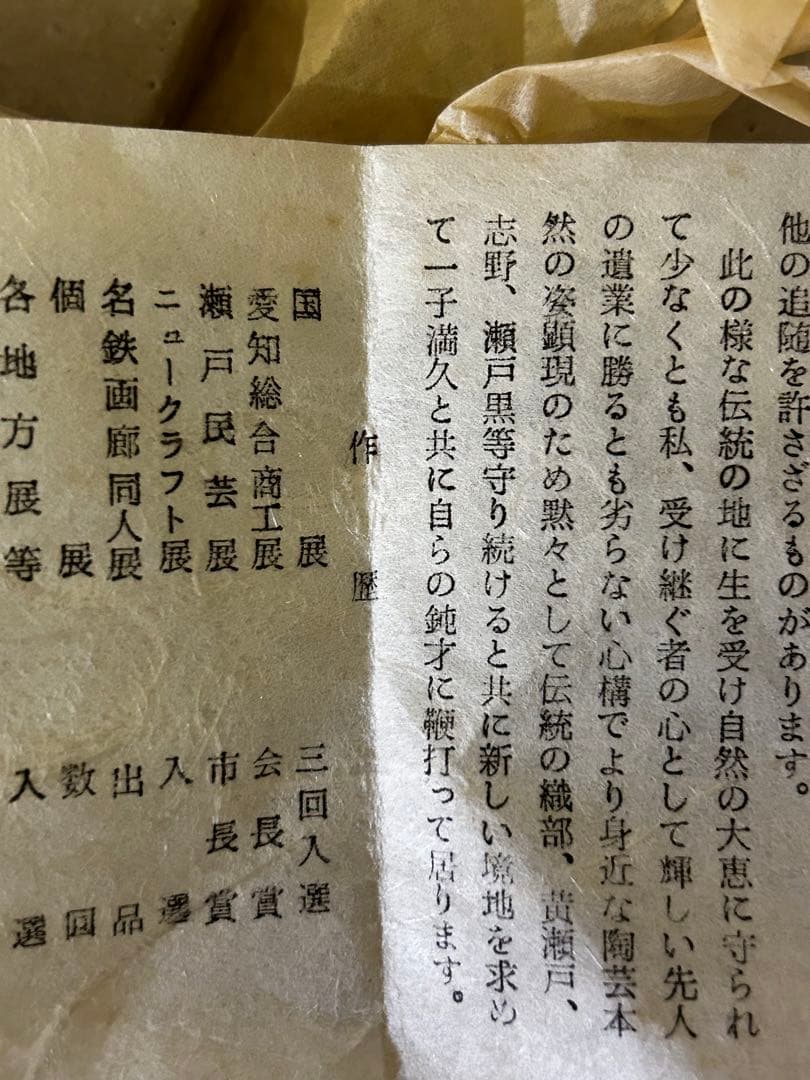 他の追随を許さざるものがあります。
此の様な伝統の地に生を受け自然の大恵に守られ
て少なくとも私、受け継ぐ者の心として輝しい先人
の遺業に勝るとも劣らない心構でより身近な陶芸本
然の姿顕現のため黙々として伝統の織部、黄瀬戸、
志野、瀬戸黒等守り続けると共に新しい境地を求め
て一子満久と共に自らの鈍才に鞭打って居ります。
作歴
国展 三回入選
愛知総合商工展 会長賞
瀬戸民芸展 市長賞
ニュークラフト展 入選
名鉄画廊同人展 出品
個展 数回
各地方展等 入選